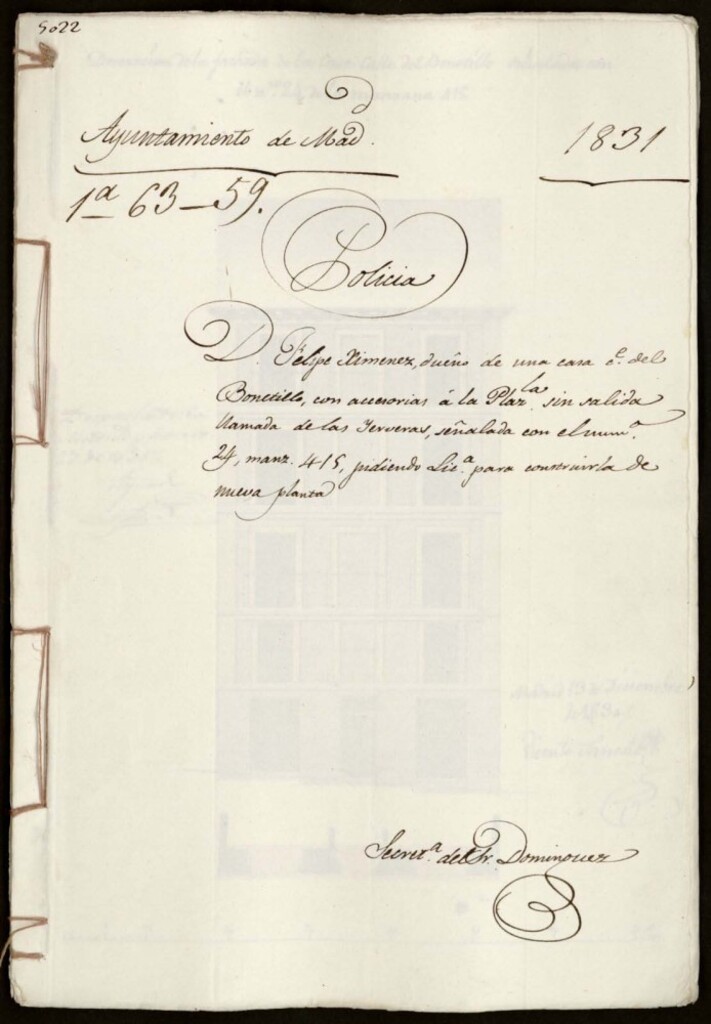 5022
Ayuntamiento de Mad.
1831
1ª 63-59.
Policia
D. Felipe Ximenez, dueño de una casa c.e del
Bonetillo, con accesorias á la Plaz.la sin salida
llamada de las Yerveras, señalada con el num.o
24, manz. 415, pidiendo Lic.a para construirla de
nueva planta
Secret.a del Sr. Dominguez